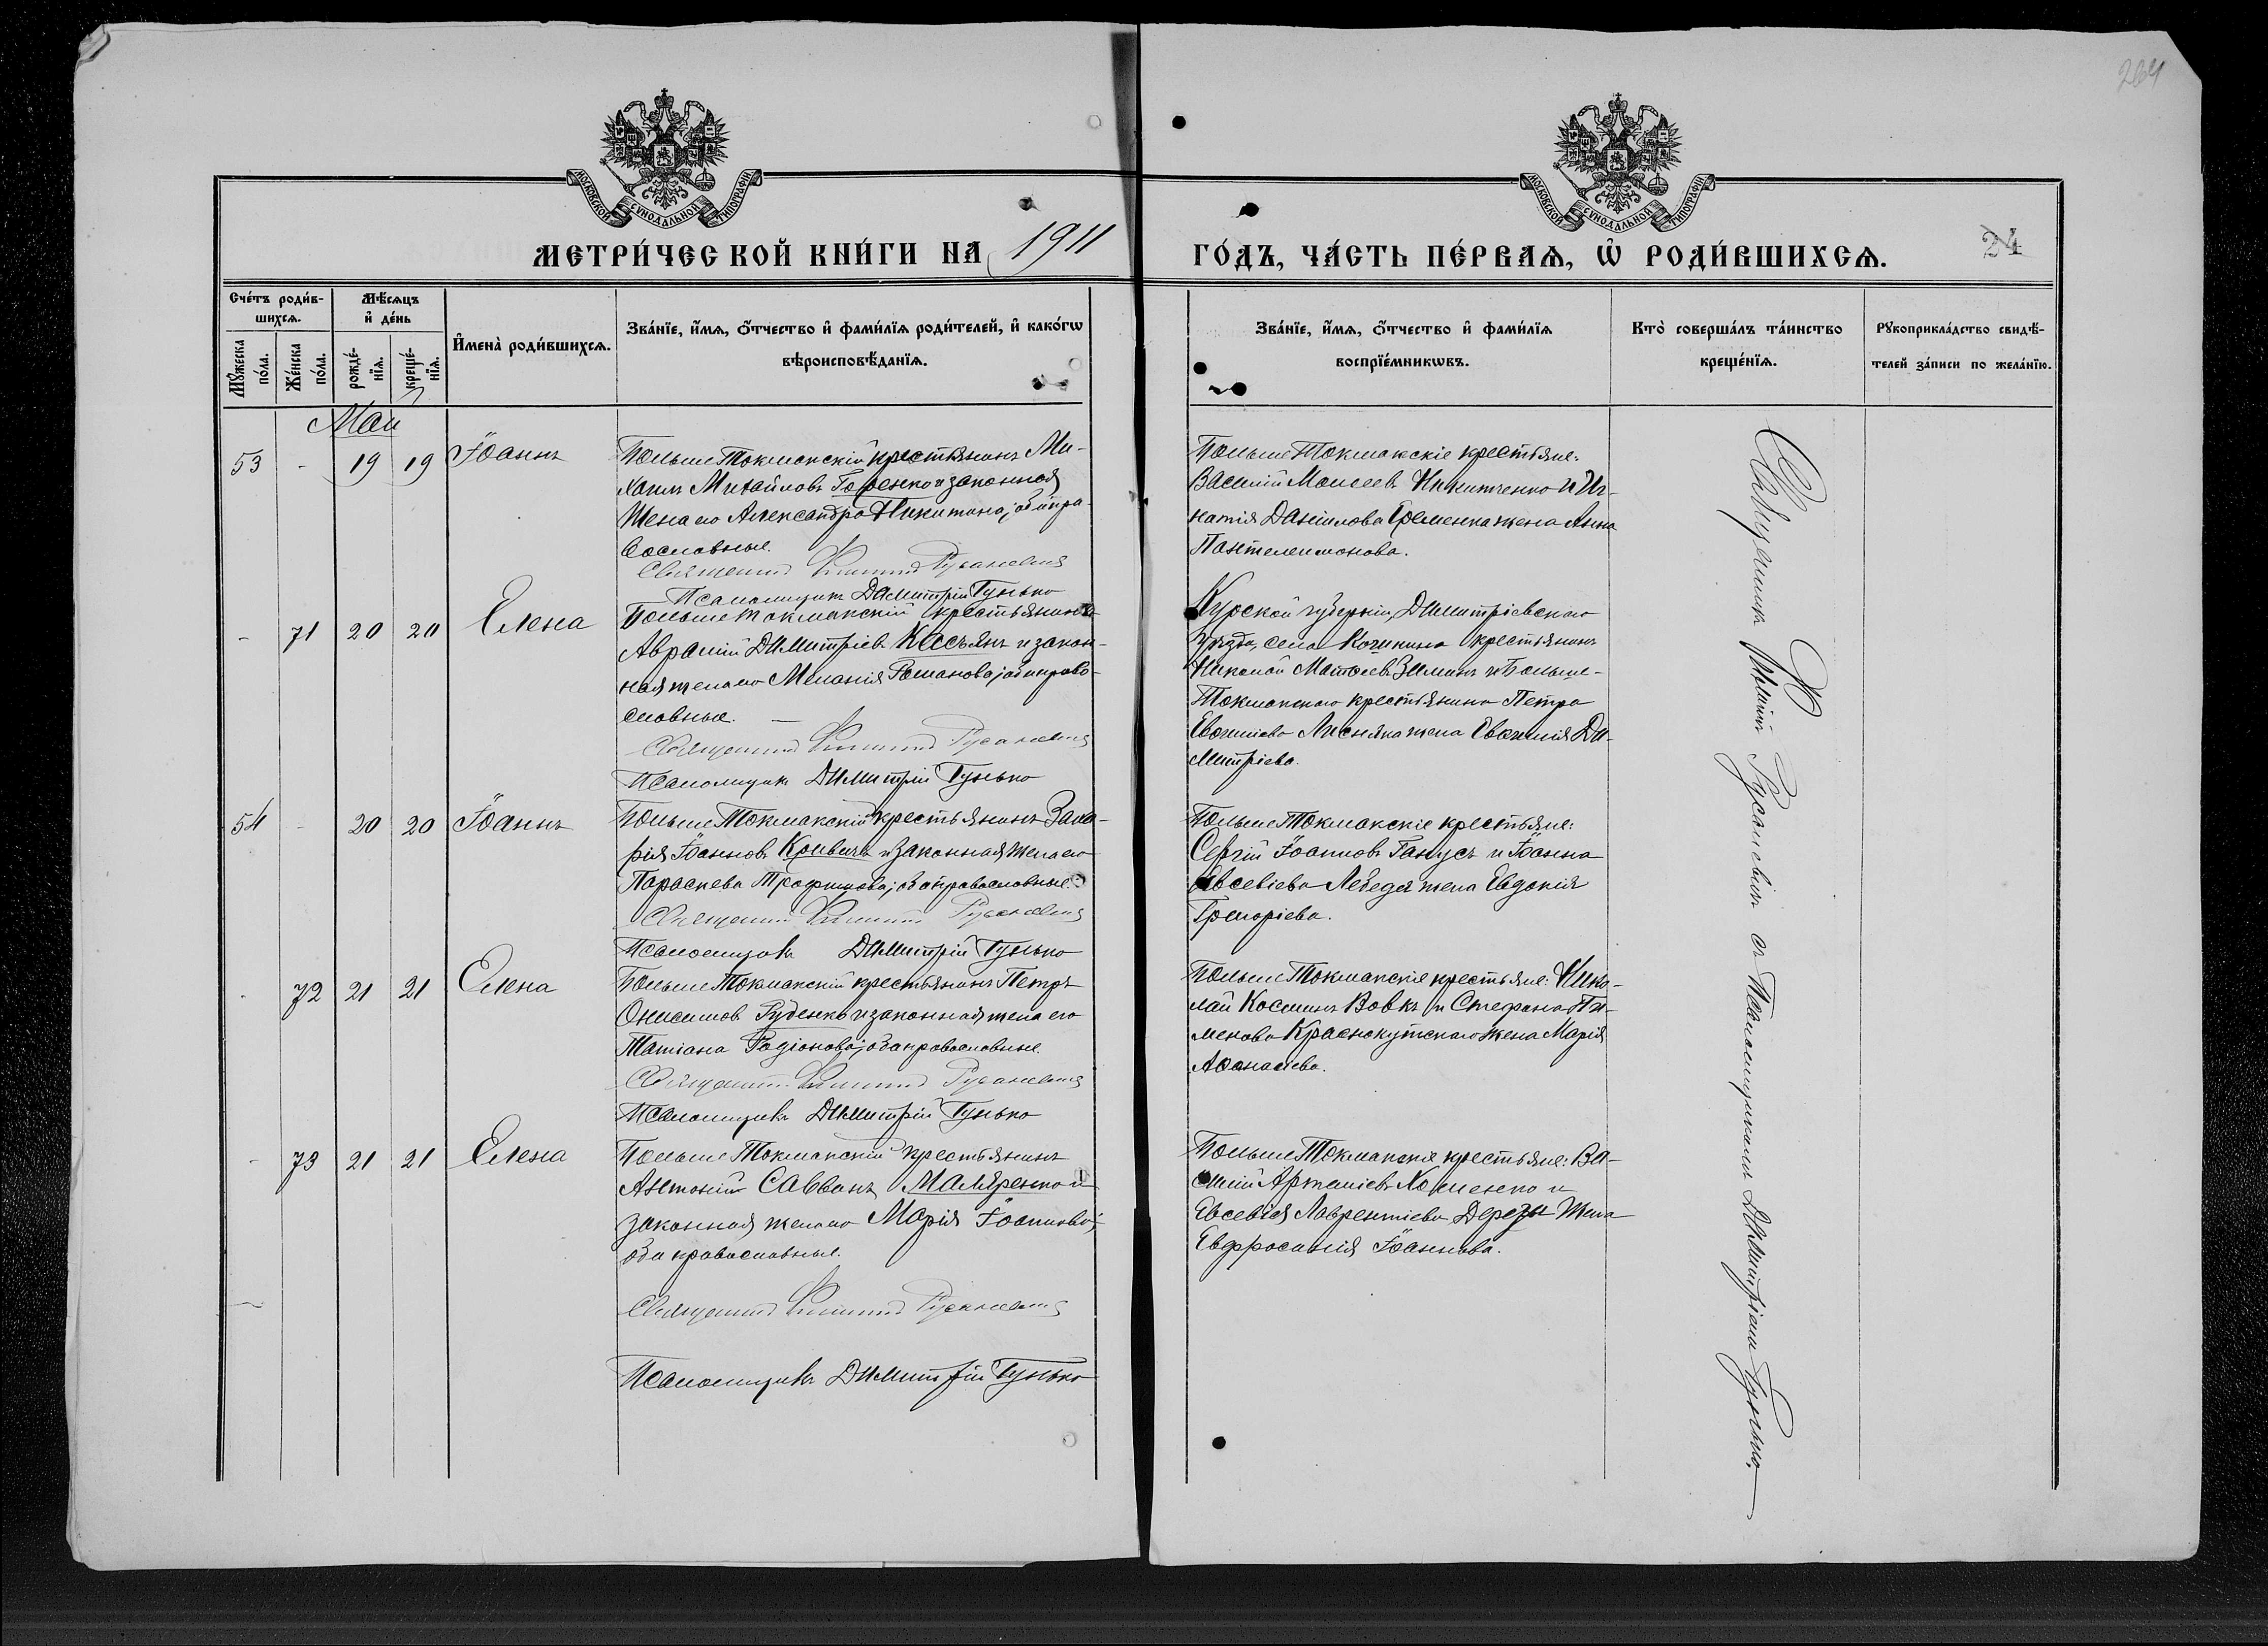 264
МОСКОВСКОЙ СУНОДАЛЬНОЙ ТИПОГРАФІИ
МОСКОВСКОЙ СУНОДАЛЬНОЙ ТИПОГРАФІИ
МЕТРИ́ЧЕСКОЙ КНИ́ГИ НА 1911
ГО́ДЪ, ЧА́СТЬ ПЕ́РВАѦ, Ѡ҆ РОДИ́ВШИХСѦ.
24
Сче́тъ роди́в-
шихсѧ.
Мꙋ́жеска по́ла.
Же́нска по́ла.
Мѣ́сѧцъ
и҆ де́нь
рожде́-
нїѧ.
креще́-
нїѧ.
И҆мена̀ роди́вшихсѧ.
Зва́нїе, и҆́мѧ, ѻ҆́тчество и҆ фами́лїѧ роди́телей, и҆ како́гѡ
вѣроисповѣ́данїѧ.
Зва́нїе, и҆́мѧ, ѻ҆́тчество и҆ фами́лїѧ
воспрїе́мникѡвъ.
Кто̀ соверша́лъ та́инство
креще́нїѧ.
Рꙋкоприкла́дство свидѣ́-
телей за́писи по жела́нїю.
Май
53 - 19 19 Іоаннъ
Больше Токмакскій крестьянинъ Ми-
хаилъ Михайловъ и законная
жена его Александра Никитина; оба пра-
вославные.
Священникъ Русаневичъ
Псаломщикъ Димитрій Гунько
Больше Токмакскіе крестьяне:
Василій Моисеевъ Никитченко и Иг-
натія Даніилова Еременка жена Анна
Пантелеимонова.
- 71 20 20 Елена
Больше Токмакскій крестьянинъ
Аврамій Димитріевъ Касьянъ и закон-
ная жена его Меланія Романова; оба право-
славные.
Священникъ Русаневичъ
Псаломщикъ Димитрій Гунько
Курской губерніи, Димитріевскаго
уѣзда, села крестьянинъ
Николай Матѳеевъ Зиминъ и Больше-
Токмакскаго крестьянина Петра
Евѳиміева Лисняка жена Евѳимія Ди-
митріева.
54 - 20 20 Іоаннъ
Больше Токмакскій крестьянинъ Заха-
рія Іоанновъ и законная жена его
Параскева Трофимова; оба православные.
Священникъ Русаневичъ
Псаломщикъ Димитрій Гунько
Больше Токмакскіе крестьяне:
Сергій Іоанновъ Ганусъ и Іоанна
Евсевіева Лебедя жена Евдокія
Григоріева.
- 72 21 21 Елена
Больше Токмакскій крестьянинъ Петръ
Онисимовъ Руденко и законная жена его
Татіана Родіонова; оба православные.
Священникъ Русаневичъ
Псаломщикъ Димитрій Гунько
Больше Токмакскіе крестьяне: Нико-
лай Косминъ Вовкъ и Стефана Пи-
менова Краснокутскаго жена Марія
Аѳанасіева.
- 73 21 21 Елена
Больше Токмакскій крестьянинъ
Антоній Саввинъ и
законная жена его Марія Іоаннова;
оба православные.
Священникъ Русаневичъ
Псаломщикъ Димитрій Гунько
Больше Токмакскіе крестьяне: Ва-
силій Артеміевъ Хоменко и
Евсевія Лаврентіева Дерезы жена
Евфросинія Іоаннова.
Священникъ Русаневичъ съ Псаломщикомъ Димитріемъ Гунько.